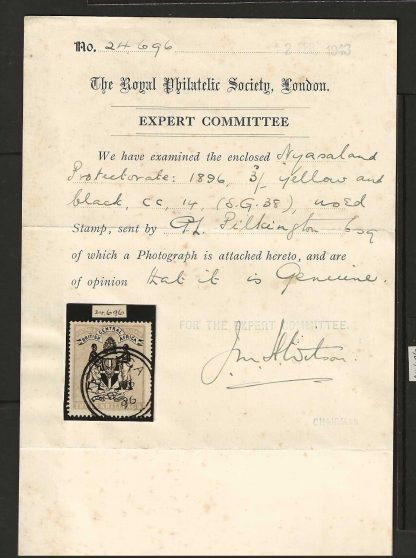 No. 24696
12 1943
The Royal Philatelic Society, London.
EXPERT COMMITTEE
We have examined the enclosed Nyasaland
Protectorate: 1896, 3/- yellow and
black, CC, 14, (S.G. 38), used
Stamp, sent by Pilkington Esq
of which a Photograph is attached hereto, and are
of opinion that it is Genuine.
24696
BRITISH CENTRAL AFRICA
96
FOR THE EXPERT COMMITTEE.
Wilson.
CHAIRMAN